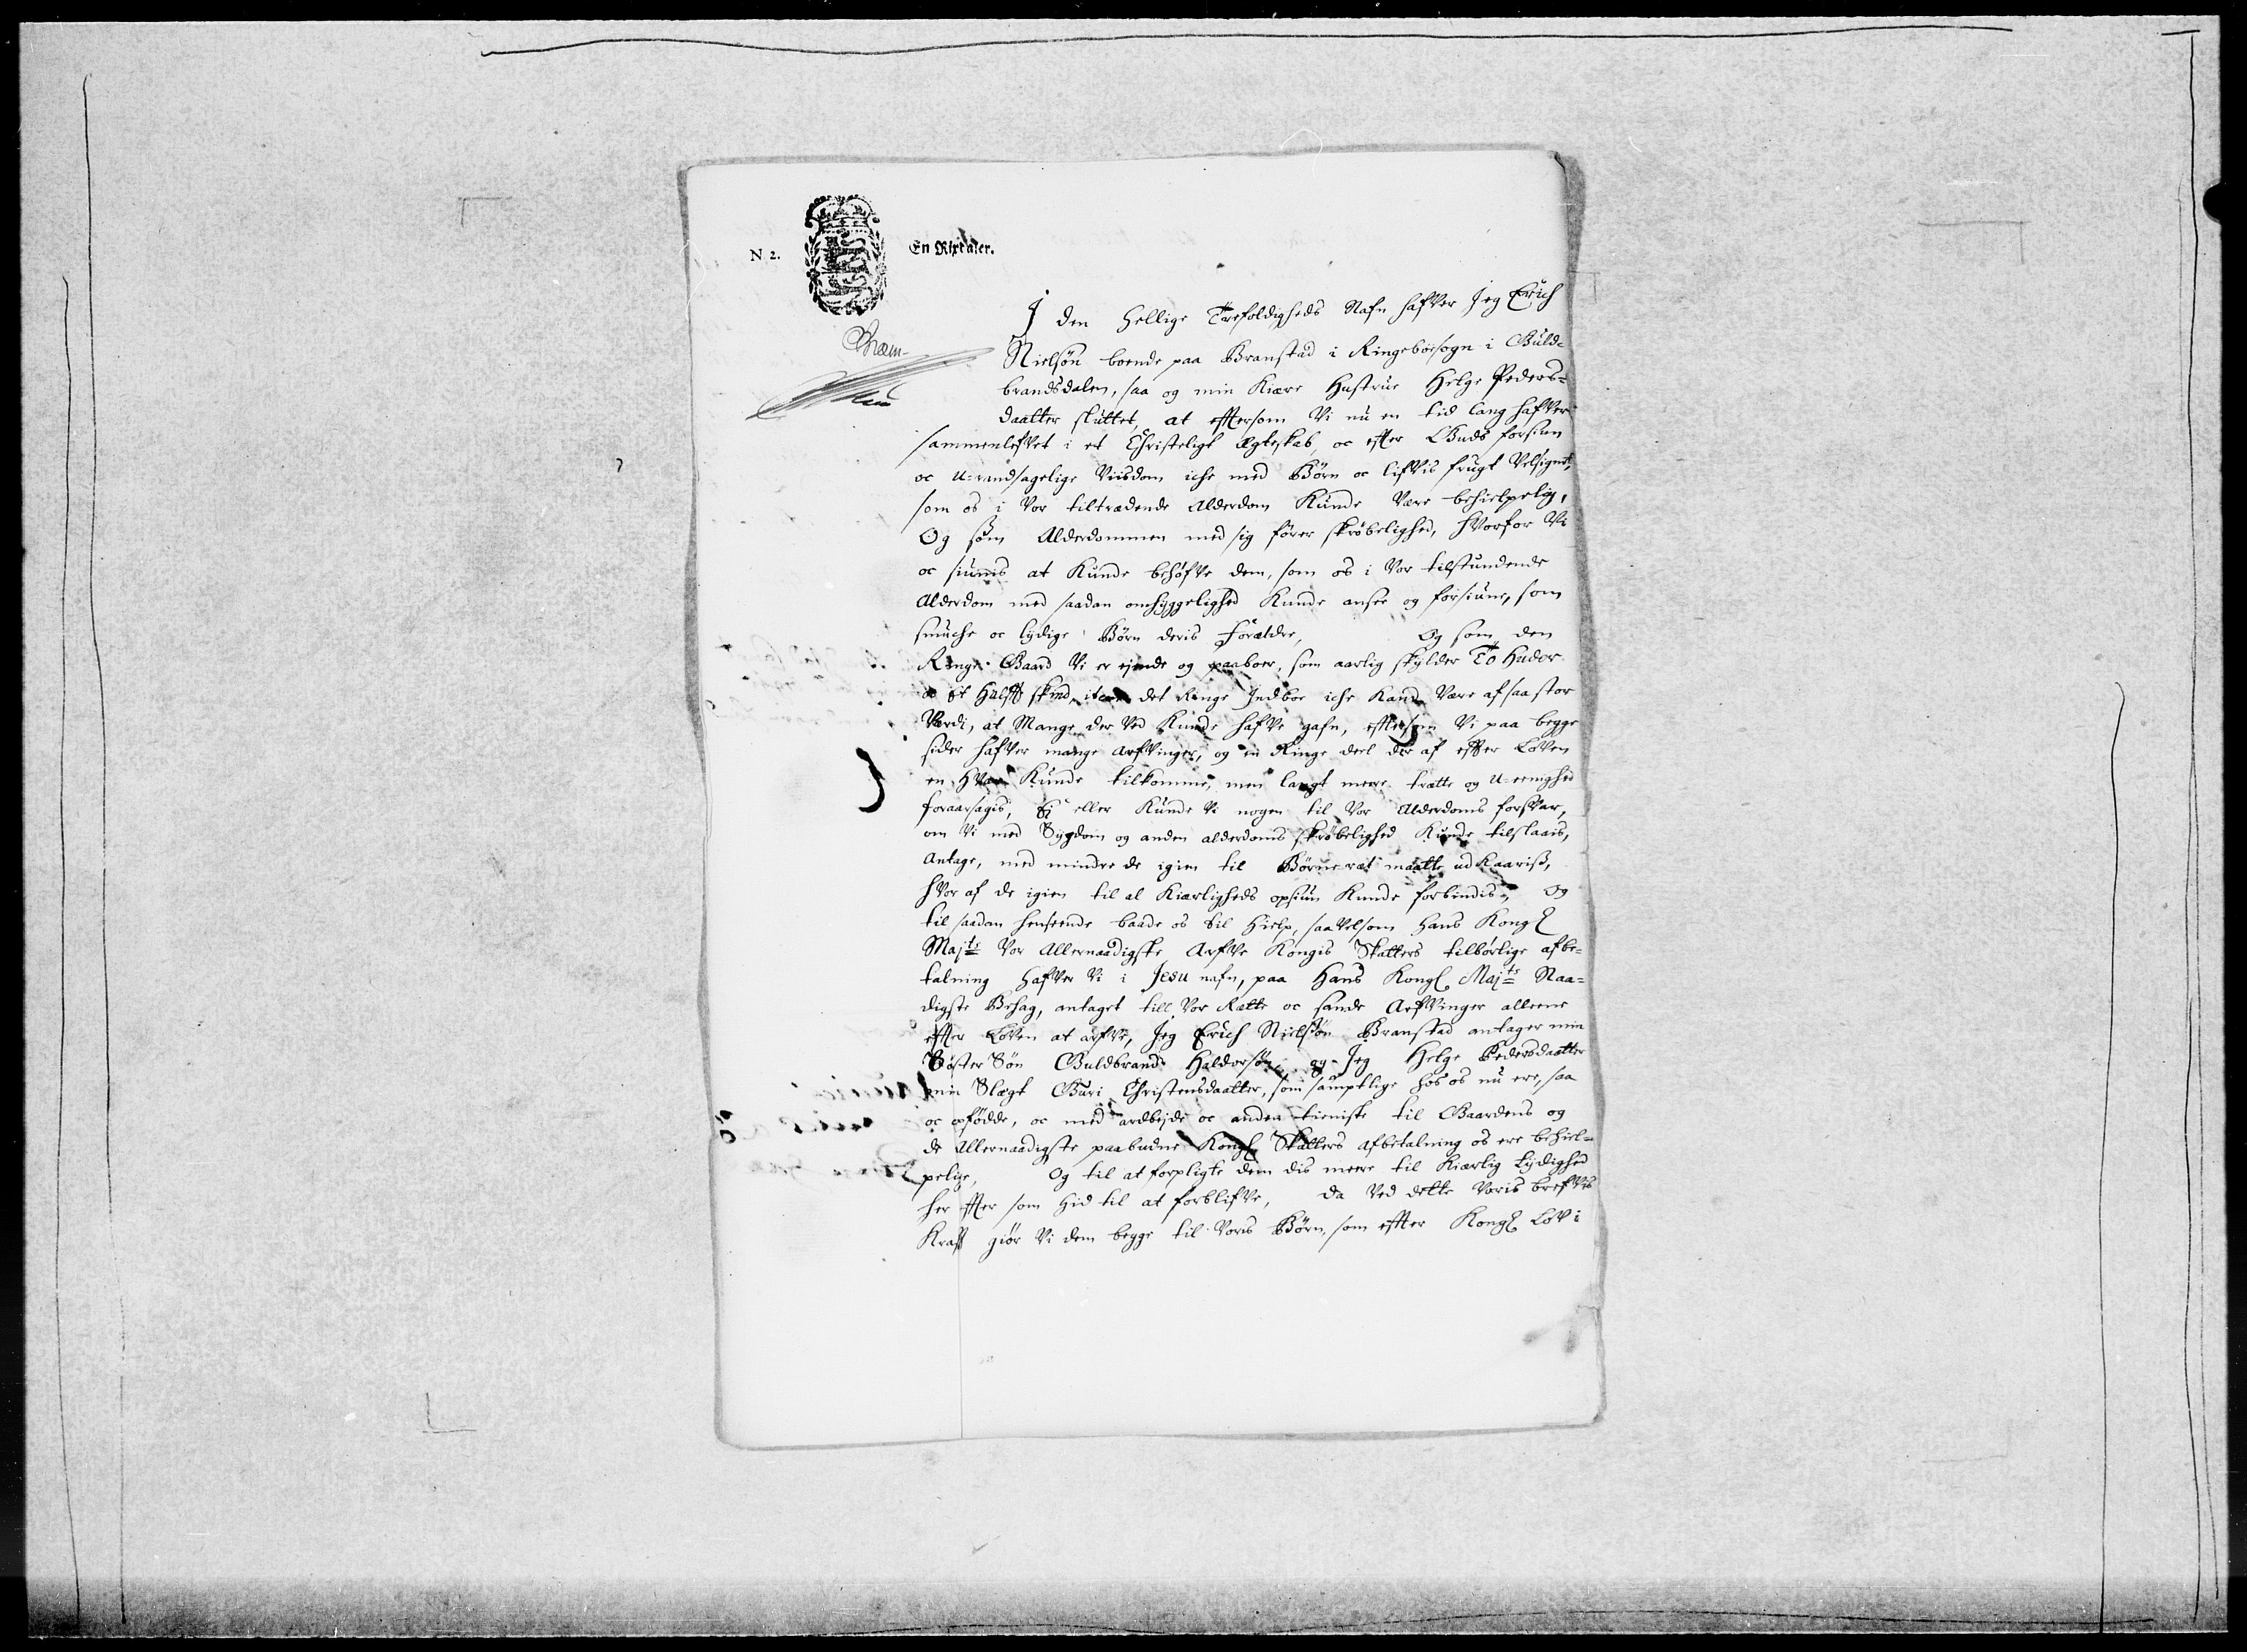 N 2.
En Rixdaler.
I den Hellige Trefoldigheds Nafn hafver Jeg Erich
Nielsøn boende paa Branstad i Ringeboesogn i Guld=
brandsdalen, saa og min Kiære Hustrue Helge Peders=
daatter sluttet, at effter som Vi nu en tid lang hafver
sammenlefvet i et Christeligt Ægteskab, oc effter Guds forsiun
oc u=randsagelige Viisdom iche med Børn oc lifvis frugt Velsignet,
som os i Vor tiltrædende Alderdom Kunde Være behielpelig,
Og som Alderdommen med sig fører skrøbelighed, hvorfor Vi
oc siunis at Kunde behøfve dem, som os i Vor tilstundende
Alderdom med saadan omhyggelighed Kunde ansee og forsiune, som
smuche oc lydige Børn deris Forældre, Og som den
Ringe Gaard Vi er ejende og paaboer, som aarlig skylder To Huder
oc et Halft skind, item det Ringe Indboe iche Kand Være af saa stor
Værdi, at Mange der Ved Kunde hafve gafn, effter som Vi paa begge
sider hafver mange Arfvinger, og en Ringe deel der af effter Loven
en hver Kunde tilkomme, men langt meere trætte og U=eenighed
foraarsagis, Ej eller Kunde Vi nogen til Vor Alderdoms forsvar,
om Vi med Sygdom og anden alderdoms skrøbelighed Kunde tilslaais,
Antage, med mindre de igien til Børneræt maatte ud Kaariß,
hvor af de igien til al Kiærligheds opsiun Kunde forbindis, Og
til saadan henseende baade os til Hielp, saavelsom Hans Kongl
Majts Vor Allernaadigste Arfve Kongis Skatters tilbørlige afbe=
talning hafver Vi i Jesu nafn, paa Hans Kongl Majts Naa=
digste Behag, antaget till Vor Rætte oc sande Arfvinger alleene
effter Loven at arfve, Jeg Erich Nielsøn Branstad antager min
Søster Søn Guldbrand Haldorsøn, og Jeg Helge Pedersdaatter
min Slægt Guri Christensdaatter, som samptlige hos os nu ere, saa
oc opfødde, oc med ardbejde oc anden tieniste til Gaardens og
de Allernaadigste paabudne Kongl Skatters afbetalning os ere behiel=
pelige, Og til at forpligte dem dis meere til Kiærlig Lydighed
her effter som hid til at forblifve, da Ved dette Voris brefvis
Krafft giør Vi dem begge til Voris Børn, som effter Kongl Lov i